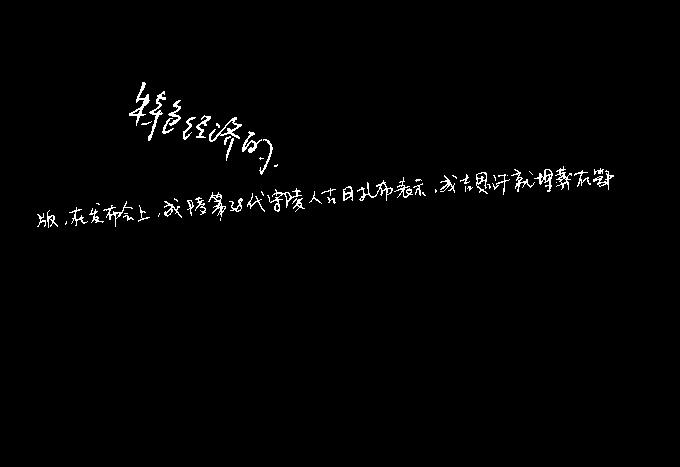 特色经济的.
版,在发布会上,成陵第38代守陵人古日扎布表示,成吉思汗就埋葬在鄂